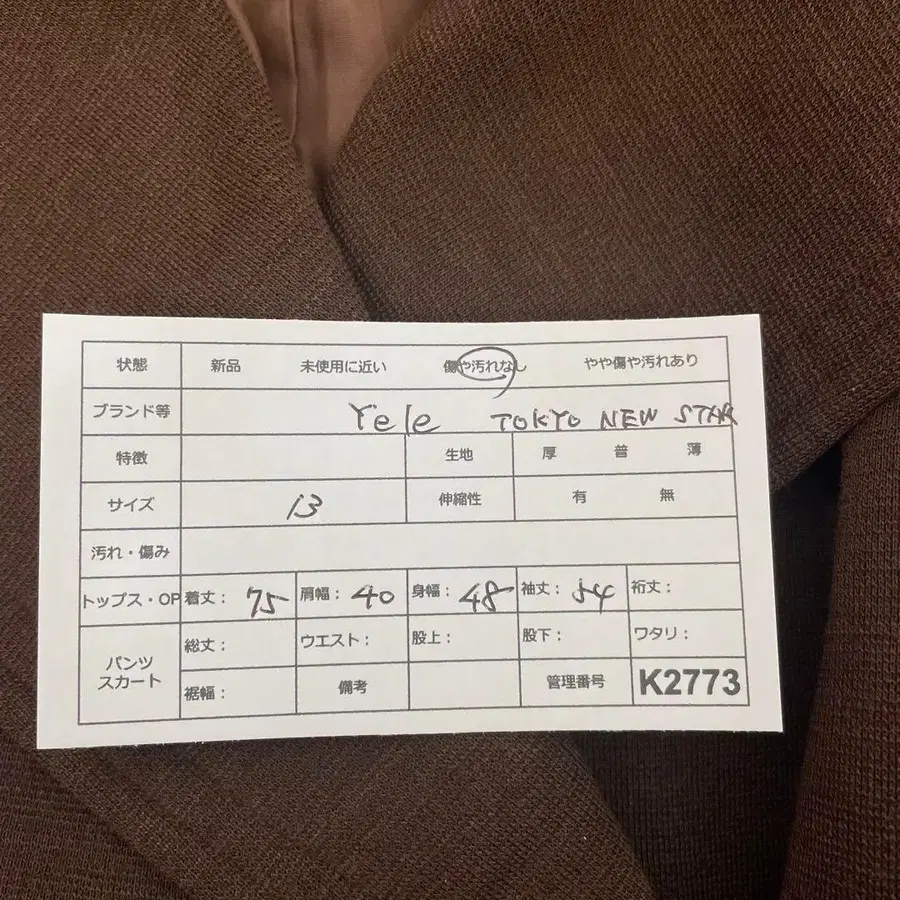 状態 新品 未使用に近い 傷や汚れなし やや傷や汚れあり
ブランド等 Yele TOKYO NEW STAR
特徴 生地 厚 普 薄
サイズ 13 伸縮性 有 無
汚れ・傷み
トップス・OP 着丈: 75 肩幅: 40 身幅: 48 袖丈: 54 裄丈:
パンツ スカート 総丈: ウエスト: 股上: 股下: ワタリ:
裾幅: 備考 管理番号 K2773